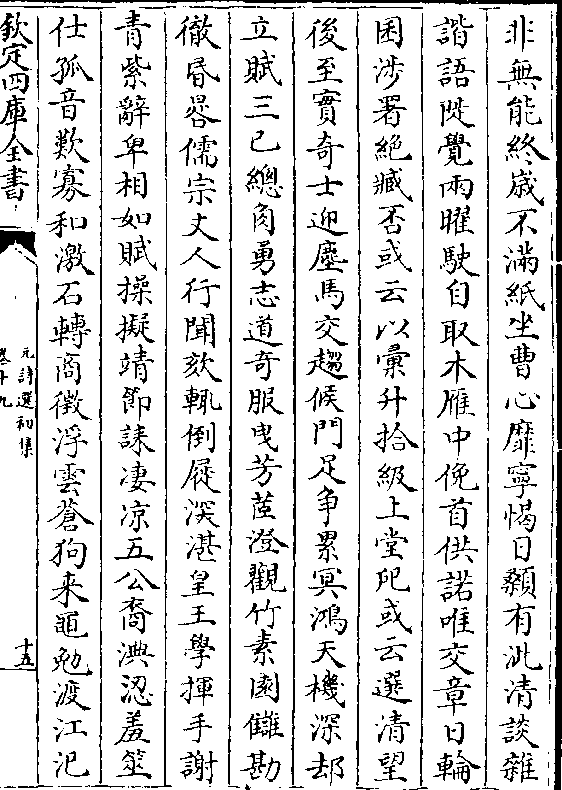 非無能終歲不滿紙坐曹心靡寧愒日顙有泚清談雜
諧語陡覺兩曜駛自取木雁中俛首供諾唯交章日輪
囷涉署絶臧否或云以彙升拾級上堂戺或云選清望
後至實奇士迎塵馬交趨候門足争累冥鴻天機深却
立賦三已總角勇志道奇服曳芳茝澄觀竹素園讎勘
徹昏晷儒宗丈人行聞欬輒倒屣深湛皇王學揮手謝
青紫辭卑相如賦操擬靖節誄凄凉五公裔淟涊羞筮
仕孤音歎寡和激石轉商徵浮雲蒼狗来黽勉渡江汜
欽定四庫全書
元詩選初集
卷十九
十五